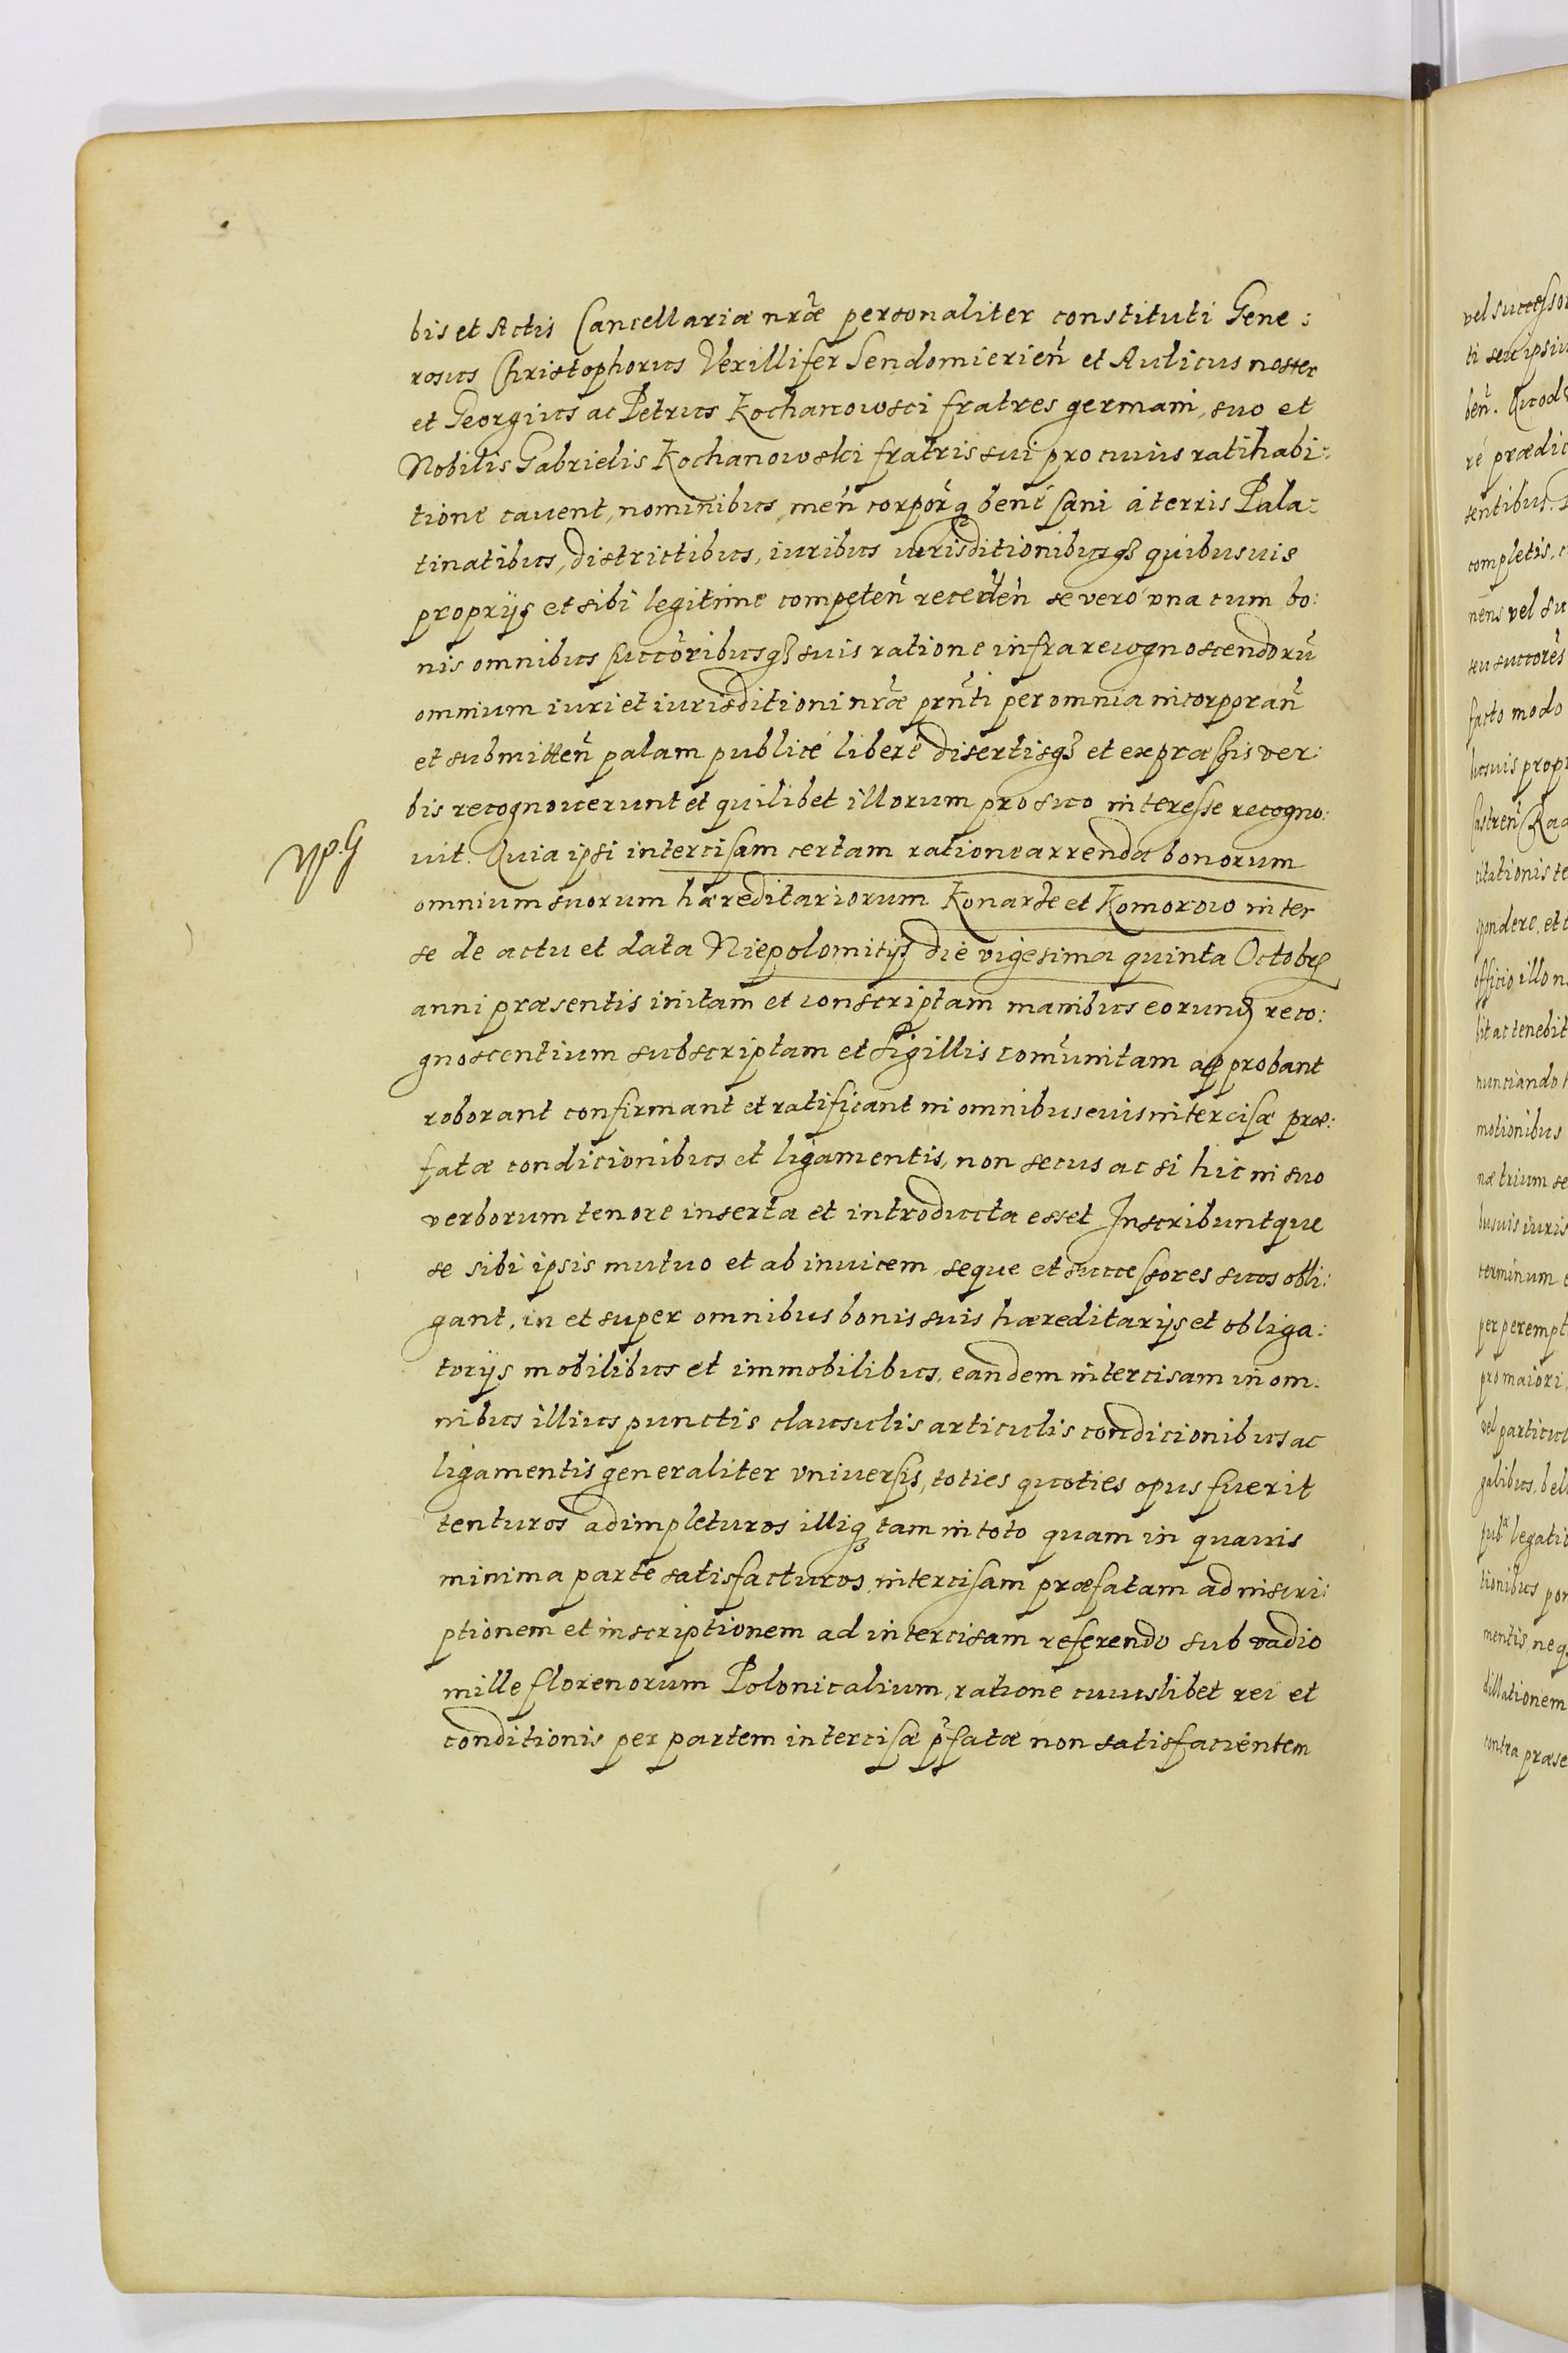 bis et Actis Cancellariæ nr̃æ personaliter constituti Gene:
rosus Christophorus Vexillifer Sendomirien̄ et Aulicus noster
et Georgius ac Petrus Kochanowsci fratres germani, suo et
Nobilis Gabrielis Kochanowski fratris sui pro cuius ratihabi:
tione cavent, nominibus, men̄ corpor̄q bene sani à terris Pala:
tinatibus, districtibus, iuribus iurisditionibusq3 quibusuis
proprijs et sibi legitime competen̄ receden̄ se vero vna cum bo:
nis omnibus succōribusq3 suis ratione infra recognoscendorū
omnium iuri et iurisditioni nr̃æ prñti per omnia incorporan̄
et submitten̄ palam publicé liberé disertisq3 et expræssis ver:
bis recognouerunt et quilibet illorum pro suo interesse recogno:
uit. Quia ipsi intercisam certam ratione arrendæ bonorum
omnium suorum hæreditariorum Konarse et Komorow inter
se de actu et data Niepolomicijs die vigesima quinta Octobris
anni præsentis initam et conscriptam manibus eorund reco:
gnoscentium subscriptam et sigillis com̄unitam approbant
roborant confirmant et ratificant in omnibus euis intercisæ præ:
fatæ condicionibus et ligamentis, non secus ac si hic in suo
verborum tenore inserta et introducta esset Inscribuntque
se sibi ipsis mutuo et ab inuicem seque et successores suos obli:
gant, in et super omnibus bonis suis hæreditarijs et obliga:
torijs mobilibus et immobilibus, eandem intercisam in om:
nibus illius punctis clausulis articulis condicionibus ac
ligamentis generaliter vniuersis, toties quoties opus fuerit
tenturos adimpleturos illiq3 tam in toto quam in quauis
minima parte satisfacturos, intercisam præfatam ad inscri:
ptionem et inscriptionem ad intercisam referendo sub vadio
mille florenorum Polonicalium, ratione cuiuslibet rei et
conditionis per partem intercisæ p̄fatæ non satisfacientem